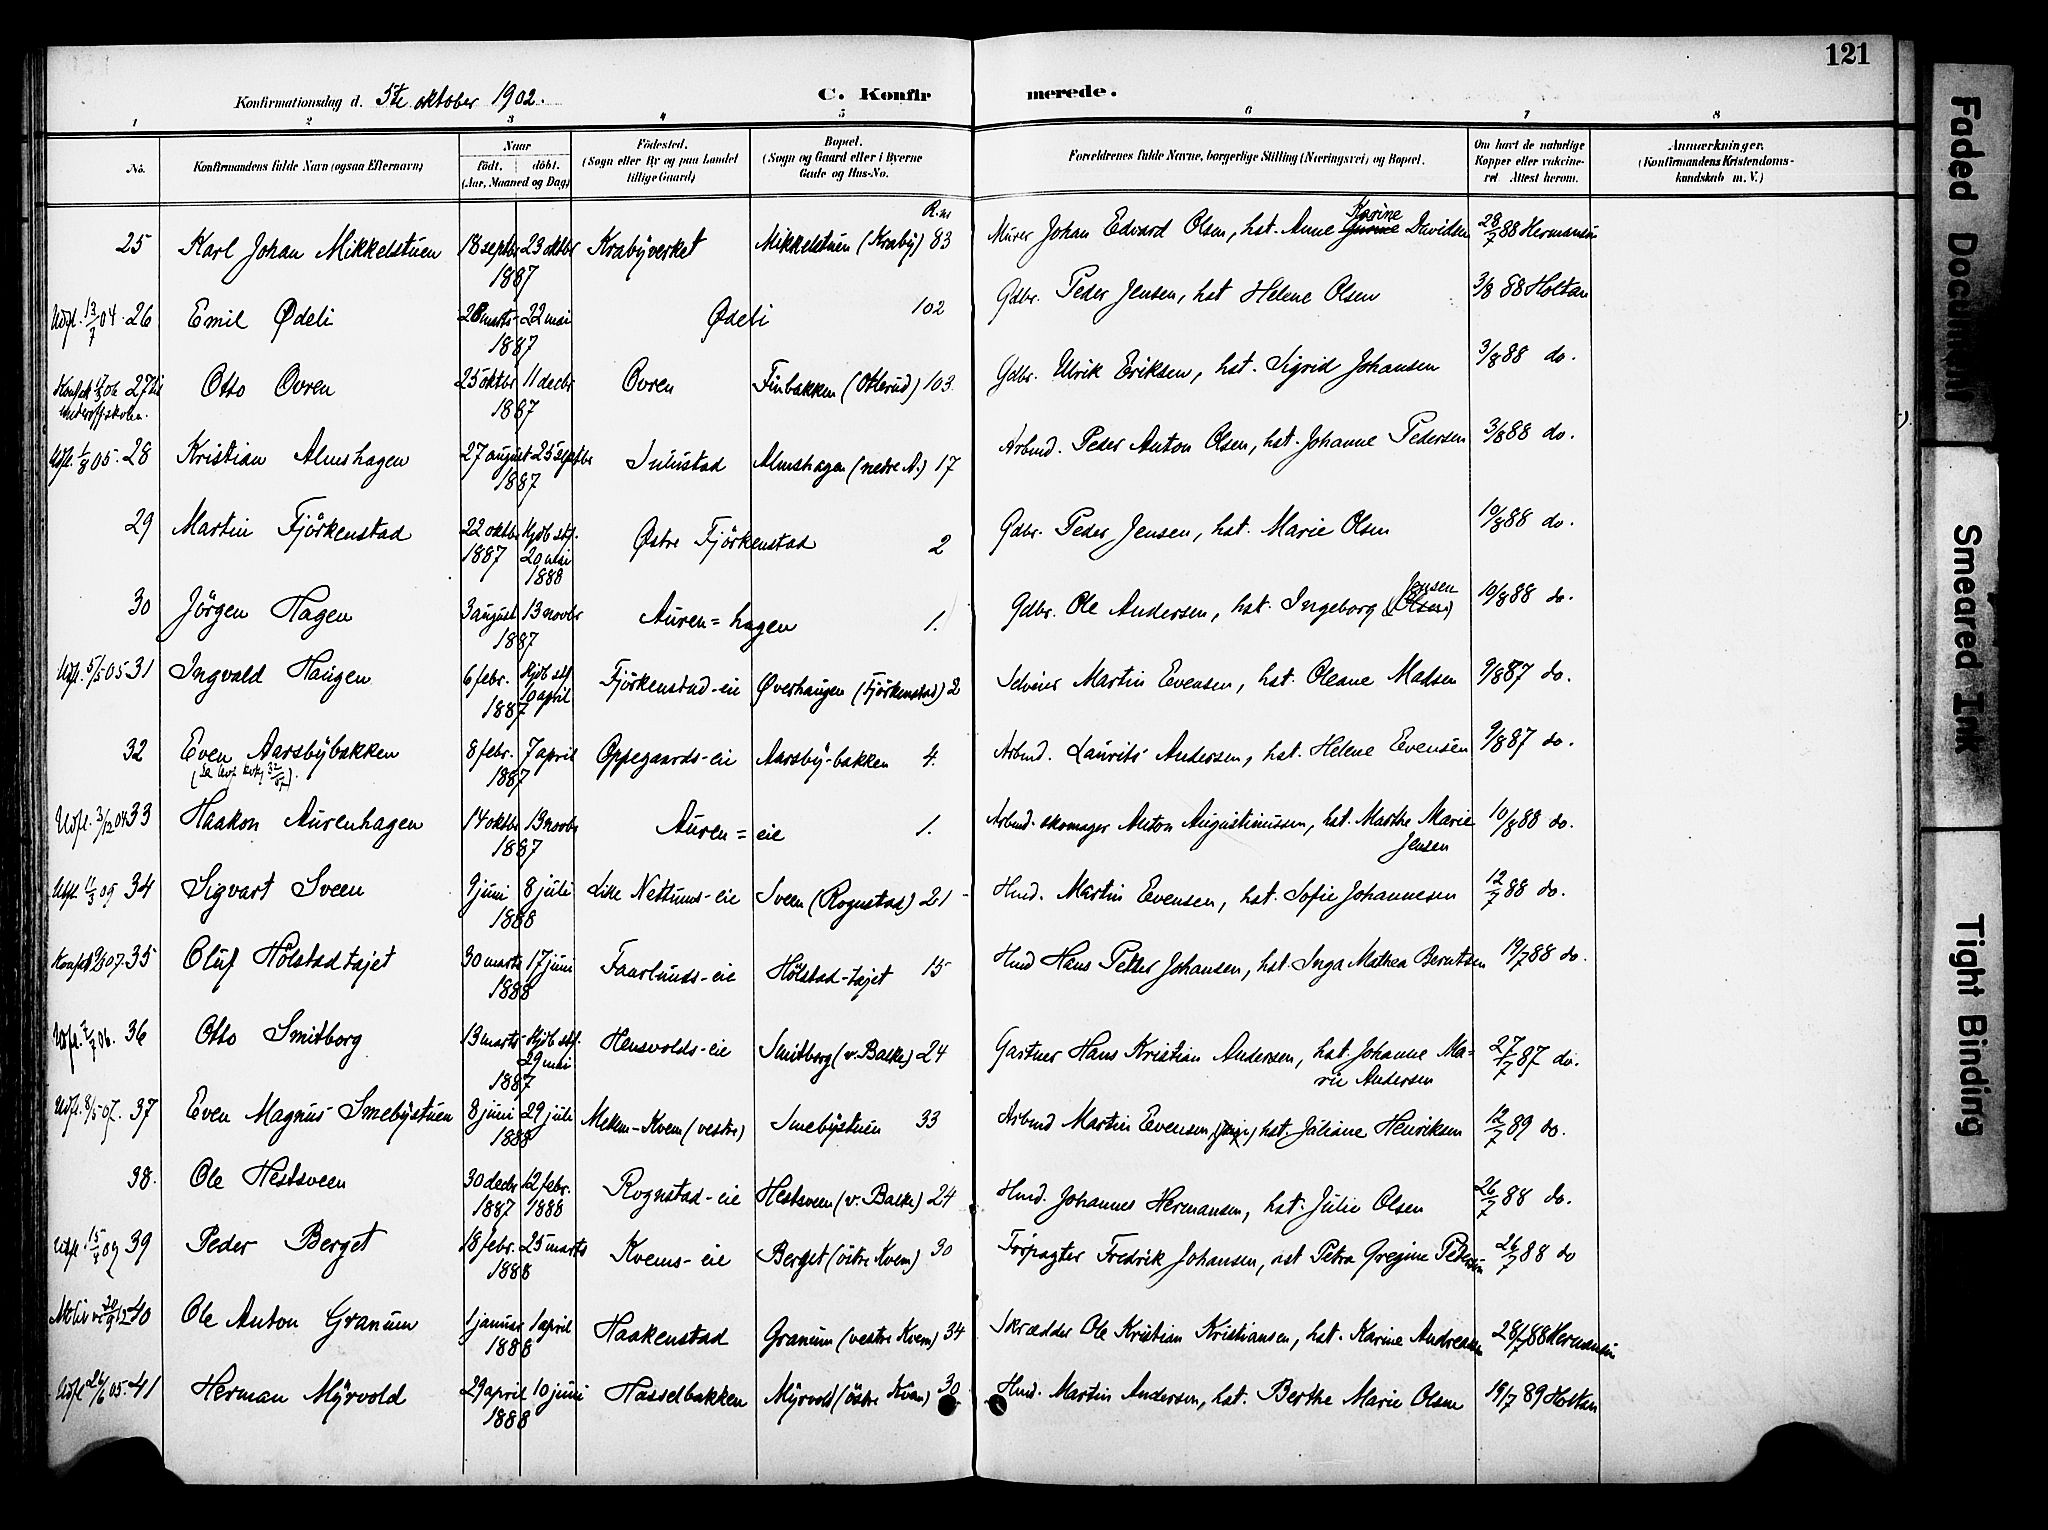 121
Konfirmationsdag d. 5te oktober 1902.
C. Konfirmerede.
1 2 3 4 5 6 7 8
No. Konfirmandens fulde Navn (ogsaa Efternavn) Naar födt. döbt. (Aar, Maaned og Dag) Födested. (Sogn eller By og paa Landet tillige Gaard) Bopæl. (Sogn og Gaard eller i Byerne Gade og Hus-No. Forældrenes fulde Navne, borgerlige Stilling (Næringsvei) og Bopæl. Om havt de naturlige Kopper eller vakcineret Attest herom. Anmærkninger. (Konfirmandens Kristendomskundskab m. V.)
25 Karl Johan Mikkelstuen 18 septbr 23 oktbr 1887 Krabyverket Mikkelstuen (Kraby) 83 Murer Johan Edvard Olsen, hst. Anne Karine Davidsen 28/7 88 Hermansen
Udfl. 13/7 04. 26 Emil Ødeli 28 marts 22 mai 1887 Ødeli 102 Gdbr. Peder Jensen, hst Helene Olsen 3/8 88 Holtan
27 Otto Ovren 25 oktbr 11 decbr 1887 Ovren Finbakken (Otterud) 103 Gdbr. Ulrik Eriksen, hst. Sigrid Johansen 3/8 88 do.
Udfl. 1/8 05. 28 Kristian Almshagen 27 august 25 septbr 1887 Julustad Almshagen (nedre A.) 17 Arbmd. Peder Anton Olsen, hst. Johanne Pedersen 3/8 88 do.
29 Martin Fjörkenstad 22 oktbr 1887 Hjdb stf. 20 mai 1888 Østre Fjörkenstad 2 Gdbr. Peder Jensen, hst. Marie Olsen 10/8 88 do.
30 Jörgen Hagen 3 august 13 novbr 1887 Auren=hagen 1. Gdbr. Ole Andersen, hst. Ingeborg Jensen (Olsen) 10/8 88 do.
Udfl. 5/5 05 31 Ingvald Haugen 6 febr. Hjdb stf 10 april 1887 Fjörkenstad-eie Øverhaugen (Fjörkenstad) 2 Selveier Martin Evensen, hst. Oleane Madsen 9/8 87 do.
32 Even Aarsbybakken 8 febr. 7 april 1887 Oppegaards-eie Aarsby-bakken 4. Arbmd. Laurits Andersen, hst. Helene Evensen 9/8 87 do.
Udfl. 3/12 04 33 Haakon Aurenhagen 14 oktbr 13 novbr 1887 Auren=eie 1. Arbmd. skomager Anton Augustinussen, hst. Marthe Marie Jensen 10/8 88 do.
Udfl. 11/3 09 34 Sigvart Sveen 9 juni 8 juli 1888 Lille Nettums-eie Sveen (Rognstad) 21 Hmd. Martin Evensen, hst. Sofie Johannesen 12/7 88 do.
35 Oluf Hölstadtajet 30 marts 17 juni 1888 Faarlunds-eie Hölstad-tajet 15 Hmd Hans Petter Johansen, hst. Inga Mathea Berntsen 19/7 88 do.
36 Otto Smitborg 13 marts Hjdb stf. 29 mai 1887 Hensvolds-eie Smitborg (v. Balke) 24 Gartner Hans Kristian Andersen, hst. Johanne Marie Andersen 27/7 87 do.
Udfl. 8/5 07. 37 Even Magnus Smebystuen 8 juni 29 juli 1888 Melem-Kvem (vestre) Smebystuen 33 Arbmd Martin Evensen, hst. Juliane Henriksen 12/7 89 do.
38. Ole Hestsveen 30 decbr 1887 12 febr. 1888 Rognstad-eie Hestsveen (v. Balke) 24 Hmd. Johannes Hermansen, hst. Julie Olsen 26/7 88 do.
39 Peder Berget 18 febr. 25 marts 1888 Kvems-eie Berget (östre Kvem) 30 Forpagter Fredrik Johansen, hst Petra Gregine Pedersen 26/7 88 do
40 Ole Anton Granum 1 januar 1 april 1888 Haakenstad Granum (vestre Kvem) 34 Skrædder Ole Kristian Kristiansen, hst. Karine Andreasen 28/7 88 Hermansen
Udfl 26/6 05 41 Herman Myrvold 29 april 10 juni 1888 Hasselbakken Myrvold (östre Kvem) 30 Hmd. Martin Andersen, hst. Berthe Marie Olsen 19/7 89 Holtan
Faded Document
Smeared Ink
Tight Binding